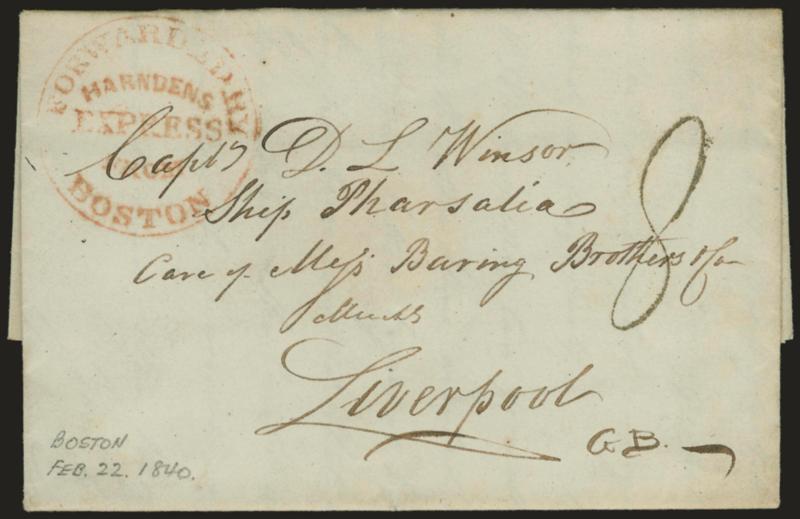 FORWARDED BY
HARNDENS
EXPRESS
FROM
BOSTON
Captn D. L Winsor
Ship Pharsalia
Care of Mess Baring Brothers & Co
8
Liverpool
G B.
BOSTON
FEB. 22. 1840.